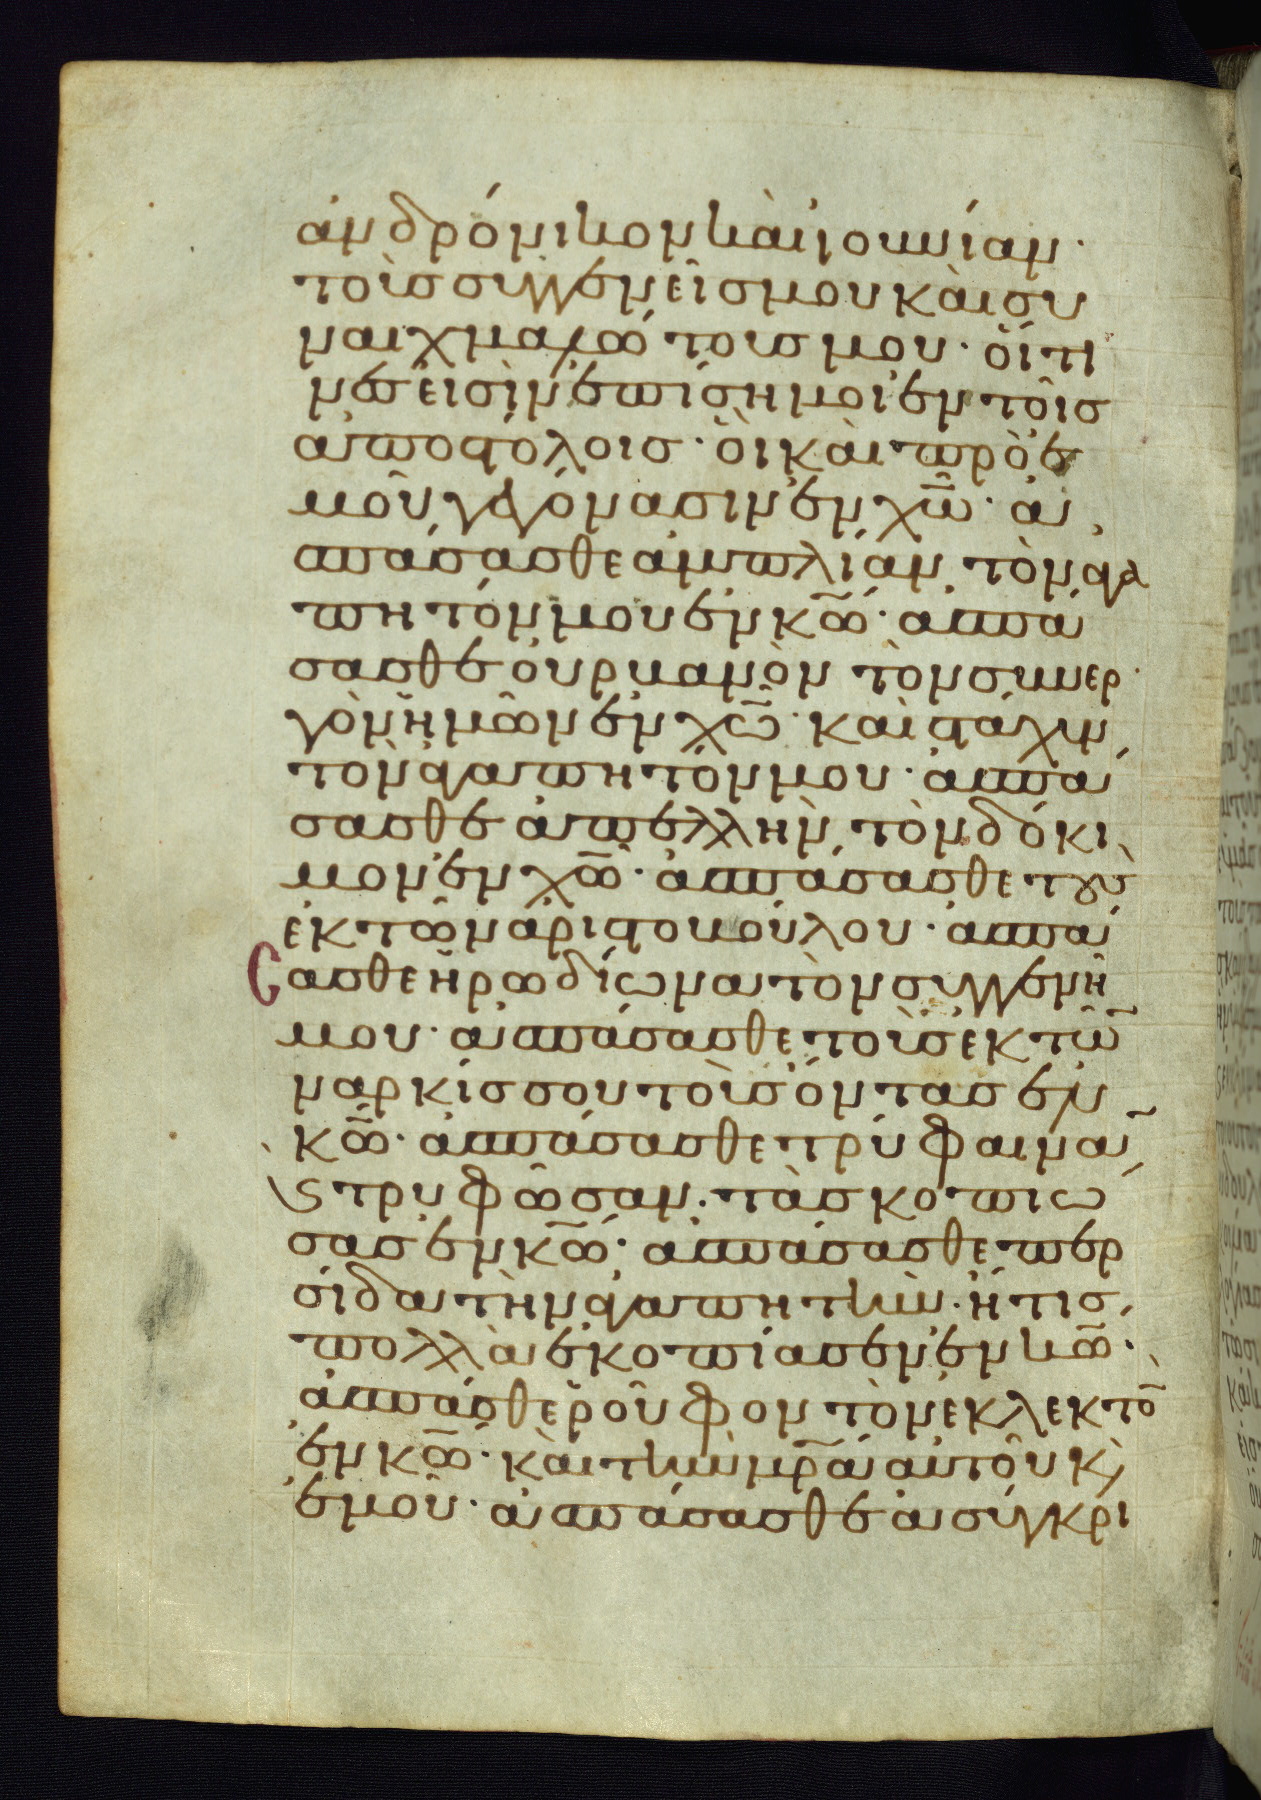 ἀνδρόνικον καὶ ἰουνίαν·
τοὺς συγγενεῖς μου καὶ συ
ναιχμαλώτους μου· οἵτι
νές εἰσιν ἐπίσημοι ἐν τοῖς
ἀποστόλοις· οἳ καὶ πρὸ ἐ
μοῦ γεγόνασιν ἐν χω̅· ἀ
σπάσασθε ἀμπλίαν τὸν ἀγα
πητόν μου ἐν κω̅· ἀσπά
σασθε οὐρβανὸν τὸν συνερ
γὸν ἡμῶν ἐν χω̅· καὶ στάχυν
τὸν ἀγαπητόν μου· ἀσπά
σασθε ἀπελλὴν τὸν δόκι
μον ἐν χω̅· ἀσπάσασθε τοὺς
ἐκ τῶν ἀριστοβούλου· ἀσπά
σασθε ἡρωδίωνα τὸν συγγενῆ
μου· ἀσπάσασθε τοὺς ἐκ τῶ̅
ναρκίσσου τοὺς ὄντας ἐν
κω̅· ἀσπάσασθε τρύφαιναν
ϛ τρυφῶσαν· τὰς κοπιώ
σας ἐν κω̅· ἀσπάσασθε περ
σίδα τὴν ἀγαπητὴν· ἥτις
πολλὰ ἐκοπίασεν ἐν κω̅·
ἀσπάσθε ῥοῦφον τὸν ἐκλεκτὸ̅
ἐν κω̅· καὶ τὴν μρ̅α αὐτοῦ κ(αὶ)
ἐμοῦ· ἀσπάσασθε ἀσύγκρι